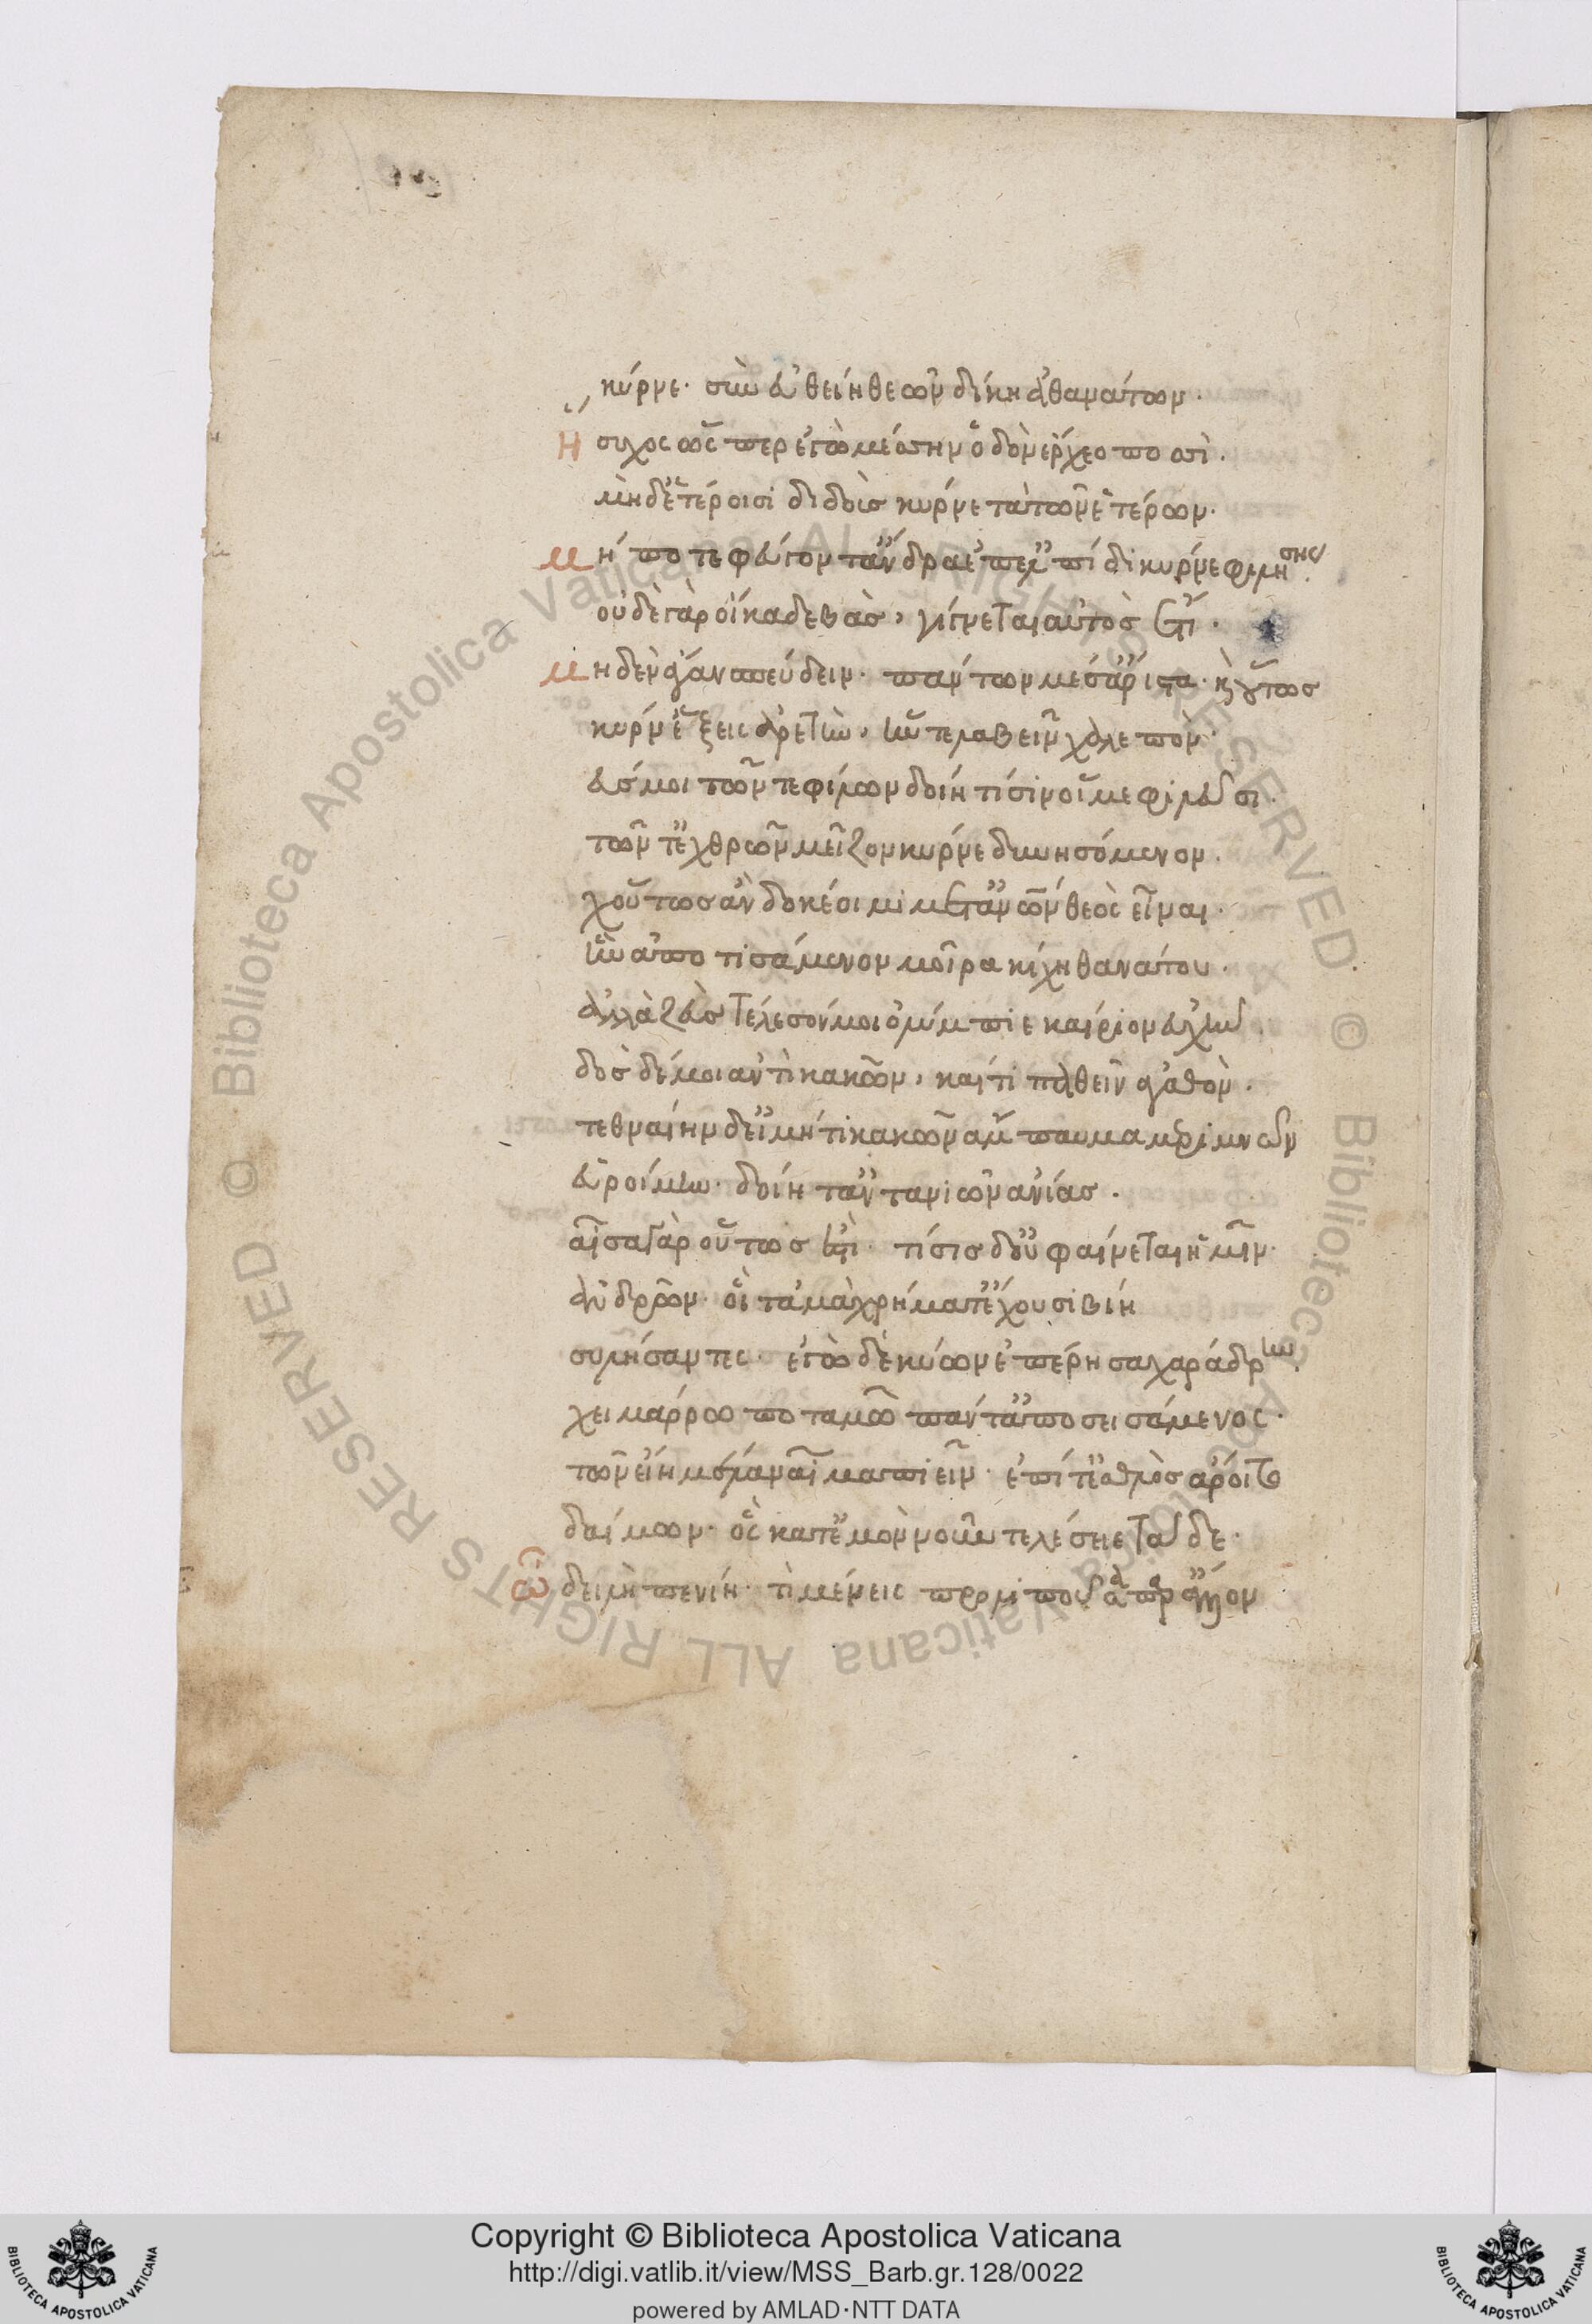 κύρνε· σὺν ἰθείη θεῶν δίκη ἀθανάτων·
Ἥσυχος ὡς περ ἐγὼ μέσην ὁδὸν ἔρχεο ποσί·
μὴ δ' ἑτέροισι διδοὺς κύρνε τὰ τῶν ἑτέρων·
μή ποτε φεύγοντ' ἄνδρα ἐπ' ἐλπίδι κύρνε φιλήσης
οὐδὲ γὰρ οἴκαδε βὰς, γίγνεται αὐτὸς ἔτι·
μηδὲν ἄγαν σπεύδειν· πάντων μέσ' ἄριστα· καὶ οὕτως
κύρν' ἕξεις ἀρετὴν, ἥν τε λαβεῖν χαλεπὸν·
Ζεύς μοι τῶν τε φίλων δοίη τίσιν οἵ με φιλεῦσι·
τῶν τ' ἐχθρῶν μεῖζον κύρνε δυνησόμενον·
χοὕτως ἂν δοκέοιμι μετ' ἀνθρώπων θεὸς εἶναι·
ἤν μ' ἀποτισάμενον μοῖρα κίχη θανάτου·
ἀλλὰ Ζεὺς τέλεσόν μοι ὀλύμπιε καίριον εὐχήν
δὸς δέ μοι ἀντὶ κακῶν, καί τι παθεῖν ἀγαθὸν·
τεθναίην δ' εἰ μή τι κακῶν ἄμπαυμα μεριμνῶν
εὑροίμην· δοίη τ' ἀντ' ἀνιῶν ἀνίας·
αἶσα γὰρ οὕτως ἐστὶ· τίσις δ' οὐ φαίνεται ἡμῖν·
ἀνδρῶν· οἳ τἀμὰ χρήματ' ἔχουσι βίη
συλήσαντες· ἐγὼ δὲ κύων ἐπέρησα χαράδρην·
χειμάρρῳ ποταμῷ πάντ' ἀποσεισάμενος·
τῶν εἴη μέλαν αἷμα πιεῖν· ἐπί τ' ἐσθλὸς ὄροιτο
δαίμων· ὃς κατ' ἐμὸν νοῦν τελέσειε τάδε·
ὦ δειλὴ πενίη· τί μένεις προλιποῦσα παρ' ἄλλον
Copyright © Biblioteca Apostolica Vaticana
http://digi.vatlib.it/view/MSS_Barb.gr.128/0022
powered by AMLAD·NTT DATA